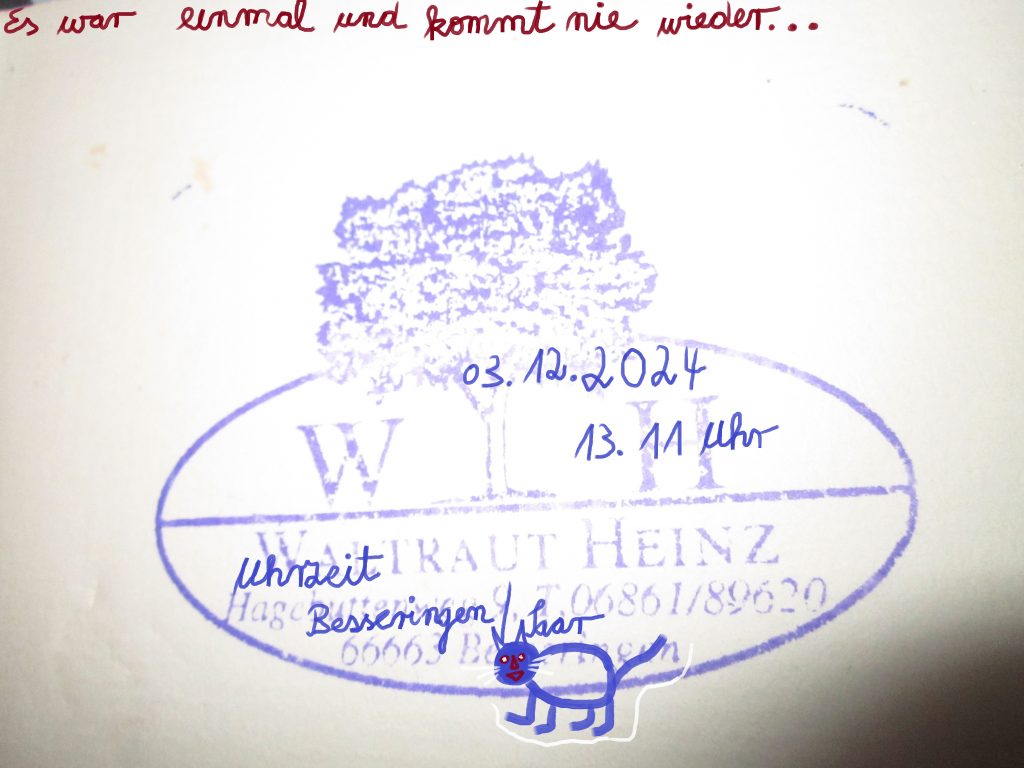 Es war einmal und kommt nie wieder...
03.12.2024
W H
13.11 Uhr
WALTRAUT HEINZ
Uhrzeit
9, T. 06861/89620
Besseringen/Saar
66663